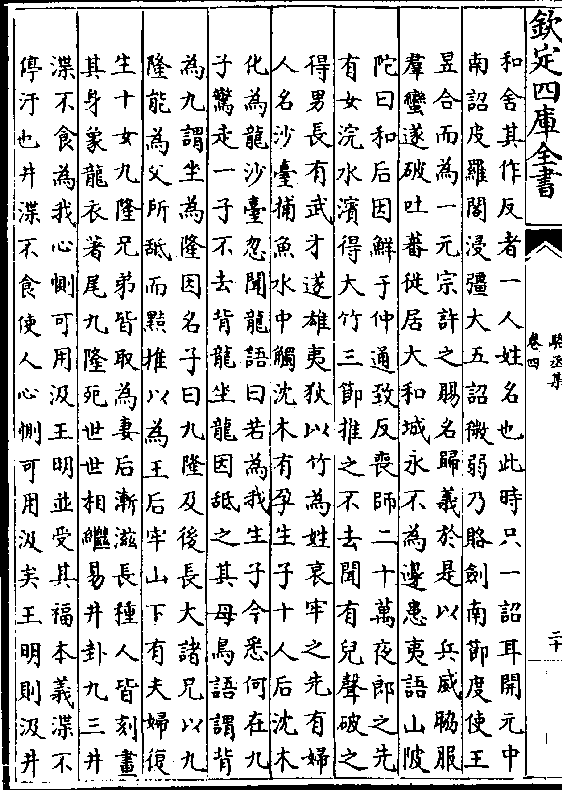 欽定四庫全書
駱丞集
卷四
二十
和舍其作反者一人姓名也此時只一詔耳開元中
南詔皮羅閣浸彊大五詔微弱乃賂劍南節度使王
昱合而為一元宗許之賜名歸義於是以兵威脇服
羣蠻遂破吐蕃徙居大和城永不為邊患夷語山陂
陀曰和后因鮮于仲通致反喪師二十萬夜郎之先
有女浣水濵得大竹三節推之不去聞有兒聲破之
得男長有武才遂雄夷狄以竹為姓哀牢之先有婦
人名沙臺捕魚水中觸沈木有孕生子十人后沈木
化為龍沙臺忽聞龍語曰若為我生子今悉何在九
子驚走一子不去背龍坐龍因舐之其母鳥語謂背
為九謂坐為隆因名子曰九隆及後長大諸兄以九
隆能為父所舐而黠推以為王后牢山下有夫婦復
生十女九隆兄弟皆取為妻后漸滋長種人皆刻畫
其身象龍衣著尾九隆死世世相繼易井卦九三井
渫不食為我心惻可用汲王明並受其福本義渫不
停汙也井渫不食使人心惻可用汲矣王明則汲井